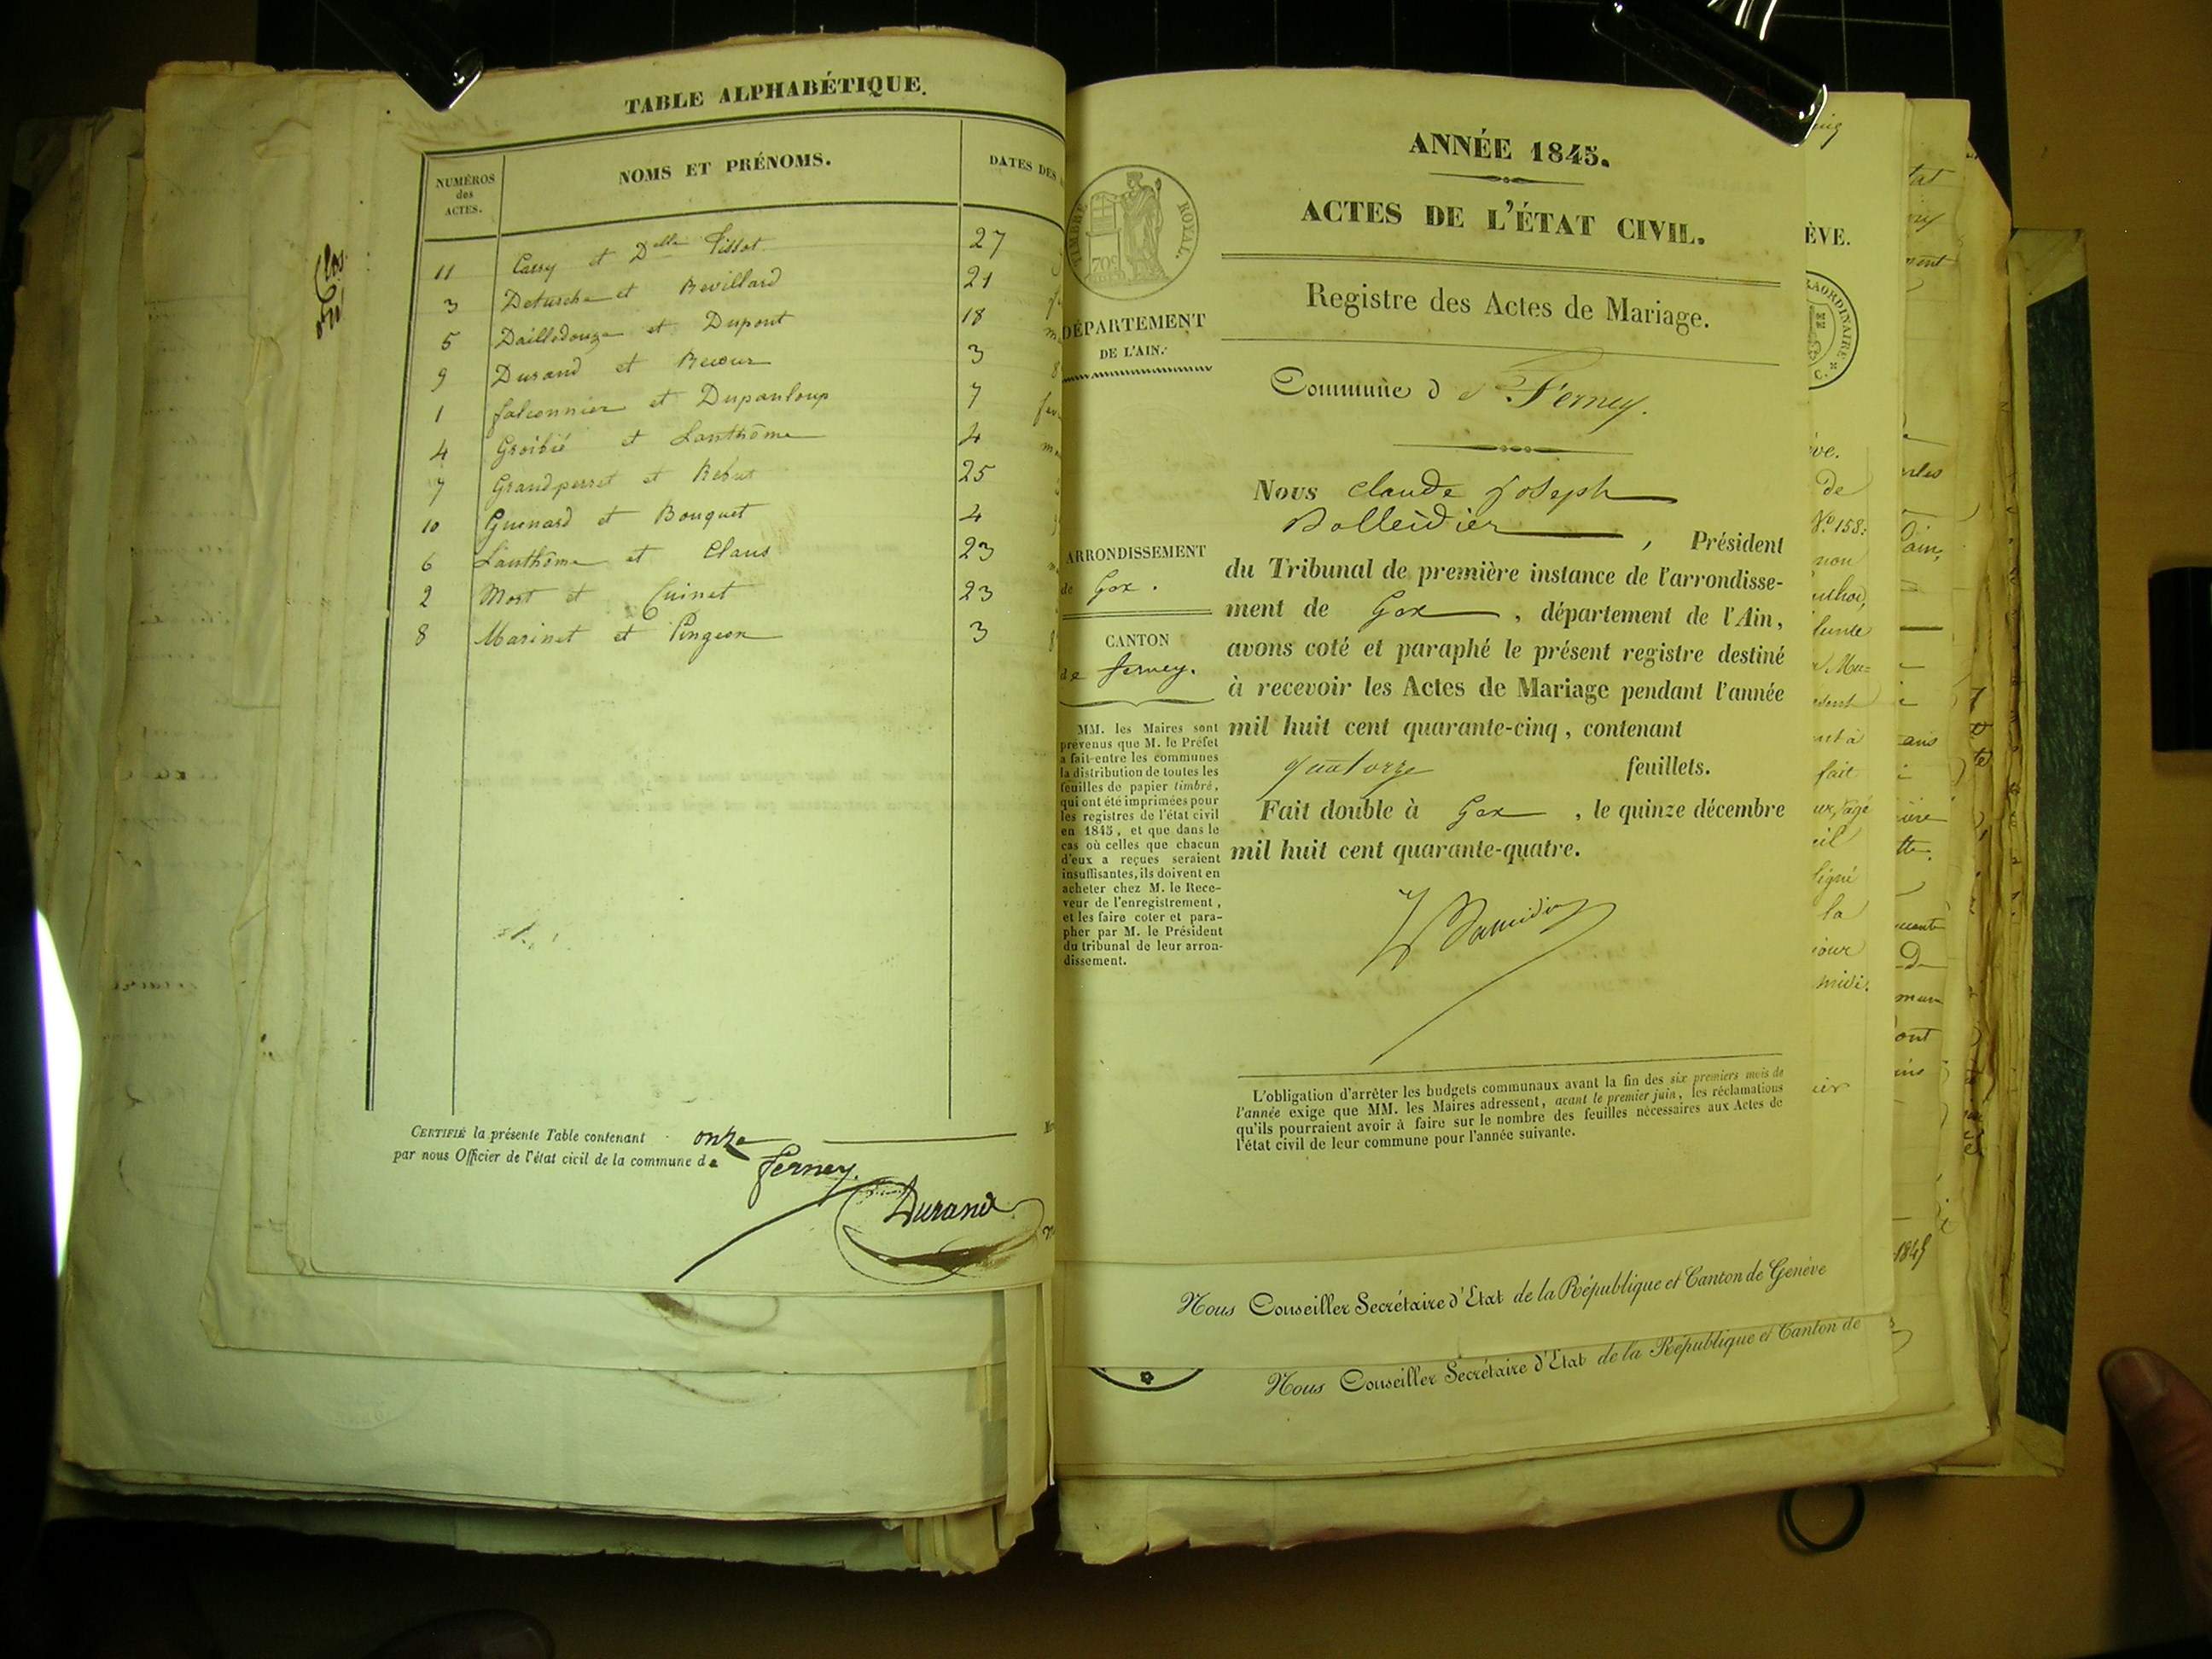 TABLE ALPHABÉTIQUE.
NUMÉROS
des
ACTES.
NOMS ET PRÉNOMS.
DATES DES
11 Carry et Delle Tissot 27
3 Deturche et Revillard 21
5 Dailledouze et Dupont 18
9 Durand et 3
1 falconnier et Dupanloup 7
4 Groibié et Lanthôme 4
7 Grandperret et Rebut 25
10 Guenard et Bouquet 4
6 Lanthôme et Claus 23
2 Mort et Cuinet 23
8 Marinet et Pingeon 3
CERTIFIÉ la présente Table contenant onze
par nous Officier de l'état cicil de la commune de Ferney.
Durand
TIMBRE ROYAL.
70c
DÉPARTEMENT
DE L'AIN.
ARRONDISSEMENT
de Gex.
CANTON
de ferney.
MM. les Maires sont
prévenus que M. le Préfet
a fait entre les communes
la distribution de toutes les
feuilles de papier timbré,
qui ont été imprimées pour
les registres de l'état civil
en 1845, et que dans le
cas où celles que chacun
d'eux a reçues seraient
insuffisantes, ils doivent en
acheter chez M. le Rece-
veur de l'enregistrement,
et les faire coter et para-
pher par M. le Président
du tribunal de leur arron-
dissement.
ANNÉE 1845.
ACTES DE L'ÉTAT CIVIL.
Registre des Actes de Mariage.
Commune d e Ferney.
Nous Claude Joseph
, Président
du Tribunal de première instance de l'arrondisse-
ment de Gex, département de l'Ain,
avons coté et paraphé le présent registre destiné
à recevoir les Actes de Mariage pendant l'année
mil huit cent quarante-cinq, contenant
quatorze feuillets.
Fait double à Gex, le quinze décembre
mil huit cent quarante-quatre.
L'obligation d'arrêter les budgets communaux avant la fin des six premiers mois de
l'année exige que MM. les Maires adressent, avant le premier juin, les réclamations
qu'ils pourraient avoir à faire sur le nombre des feuilles nécessaires aux Actes de
l'état civil de leur commune pour l'année suivante.
Nous Conseiller Secrétaire d'Etat de la République et Canton de Genève
Nous Conseiller Secrétaire d'Etat de la République et Canton de
ÈVE.
de
No. 158.
fait
la
midi.
1845